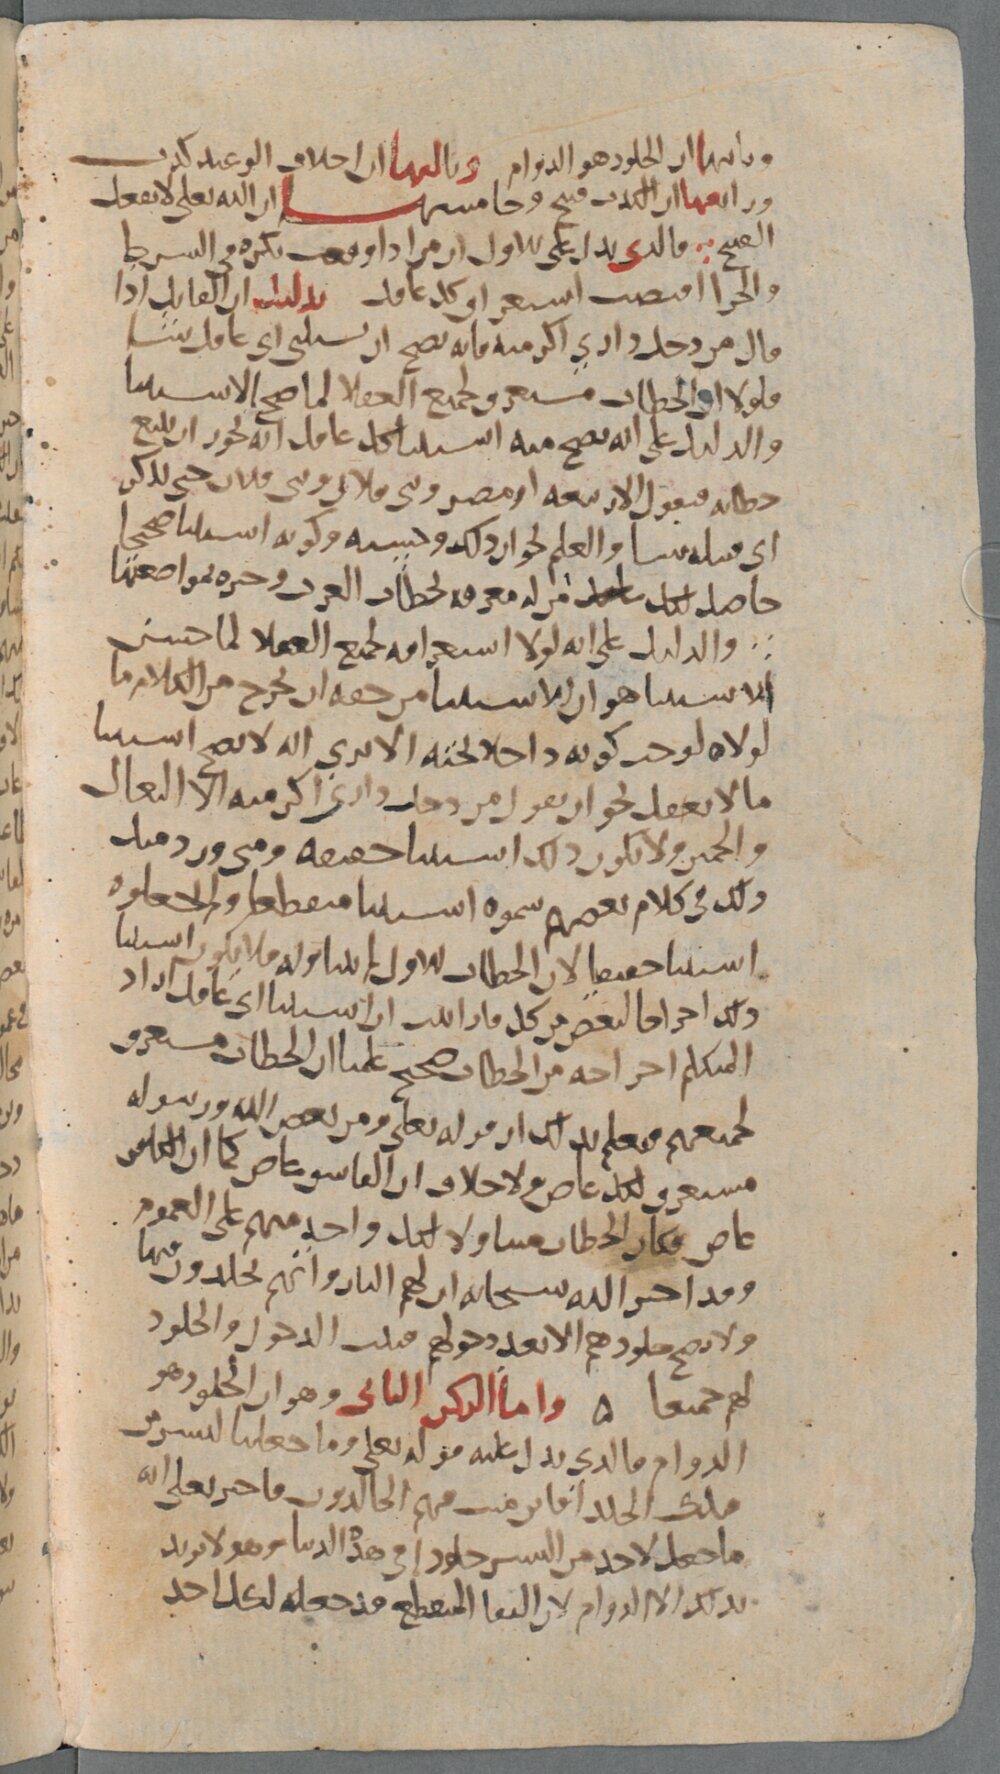 وثانيها ان الخلود هو الدوام وثالثها ان اخلاف الوعيد كذب
ورابعها ان الكذب قبيح وخامسها ان الله تعالى لا يفعل
القبيح فالذي يدل على الاول ان من اذا وقعت نكرة في الشرط
والجزا اقتضت استغراق كل عاقل بدليل ان القايل اذا
قال من دخل داري اكرمته فانه يصح ان يستثني اي عاقل شا
فلولا ان الخطاب مستغرق لجميع العقلا لما صح الاستثنا
والدليل على انه يصح منه استثنا كل عاقل انه يجوز ان يتبع
خطابه فيقول الا ربيعه او مضر وبني فلان وبني فلان حتى يذكر
اي قبيله شا والعلم بجواز ذلك وحسنه وكونه استثنا صحيحا
حاصل لكل من له معرفة بخطاب العرب وخبره بمواضعتها
والدليل على انه لولا استغراقه لجميع العقلا لما حسن
الاستثنا هو ان الاستثنا من حقه ان يخرج من الكلام ما
لولاه لوجب كونه داخلا تحته الا ترى انه لا يصح استثنا
ما لا يعقل نحو ان يقول من دخل داري اكرمته الا البغال
والحمير ولا يكون ذلك استثنا حقيقه ومتى ورد مثل
ذلك في كلام بعضهم سموه استثنا منقطعا ولم يجعلوه
استثنا حقيقيا لان الخطاب الاول لم يتناوله فلا يكون استثنا
ذلك اخراجا لبعض من كل فاذا ثبت ان استثنا اي عاقل اراد
المتكلم اخراجه من الخطاب صحيح علمنا ان الخطاب مستغرق
لجميعهم فيعلم بذلك ان قوله تعالى ومن يعص الله ورسوله
مستغرق لكل عاص ولا خلاف ان الفاسق عاص كما ان الكافر
عاص فكان الخطاب متناولا لكل واحد منهم على العموم
وقد اخبر الله سبحانه ان لهم النار وانهم يخلدون فيها
ولا يصح خلودهم الا بعد دخولهم فثبت الدخول والخلود
لهم جميعا ٥ واما الركن الثاني وهو ان الخلود هو
الدوام فالذي يدل عليه قوله تعالى وما جعلنا لبشر من
قبلك الخلد افان مت فهم الخالدون فاخبر تعالى انه
ما جعل لاحد من البشر خلودا في هذه الدنيا وهو لا يريد
بذلك الا الدوام لان البقا المنقطع قد جعله لكل احد